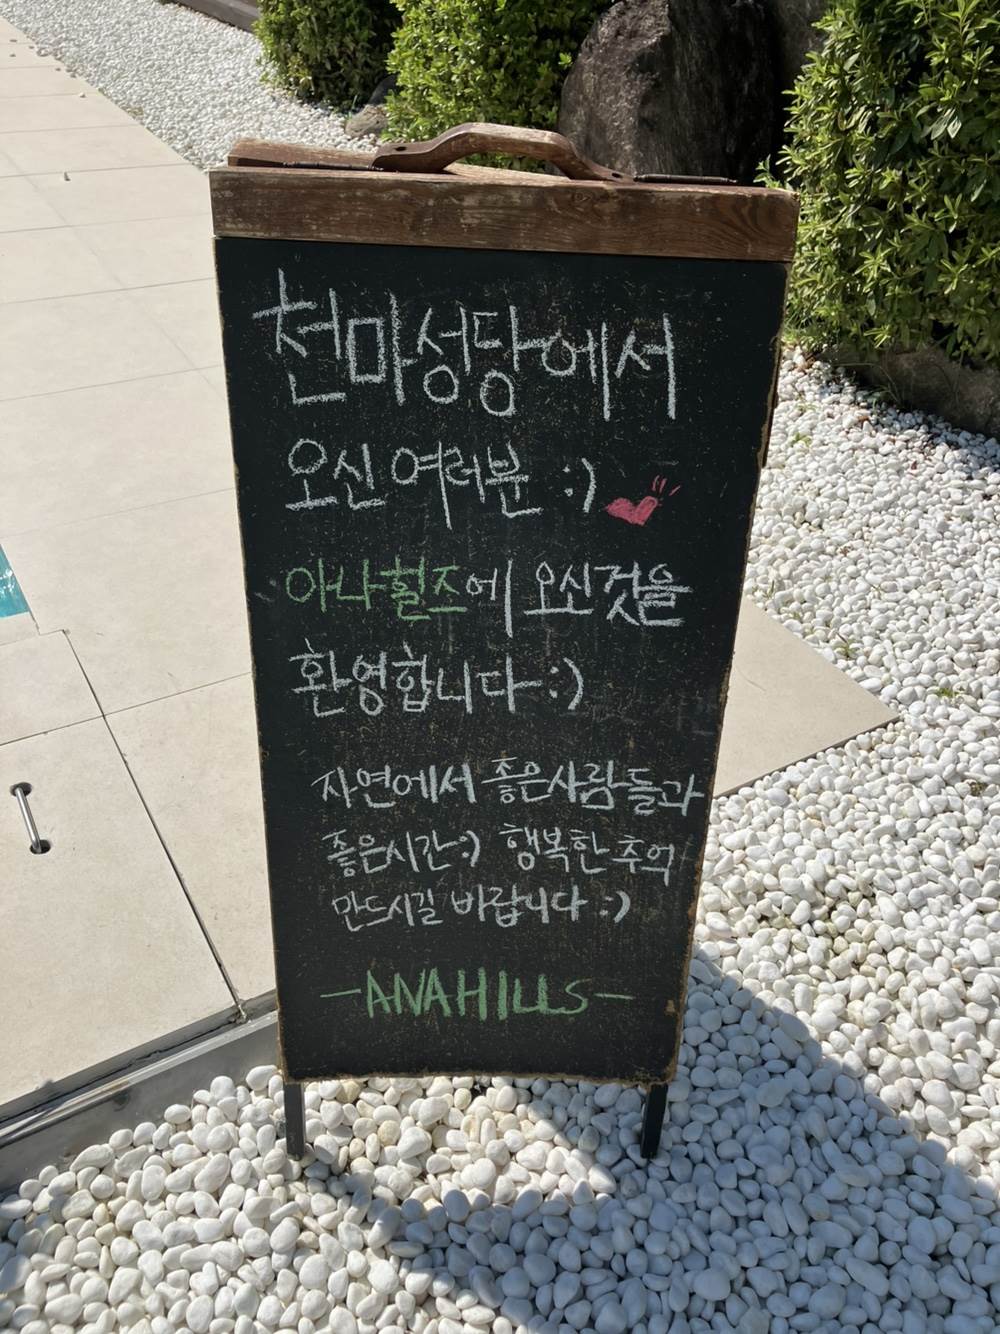 천마성당에서
오신 여러분 :)
아나힐즈에 오신것을
환영합니다 :)
자연에서 좋은사람들과
좋은시간:) 행복한 추억
만드시길 바랍니다 :)
-ANAHILLS-